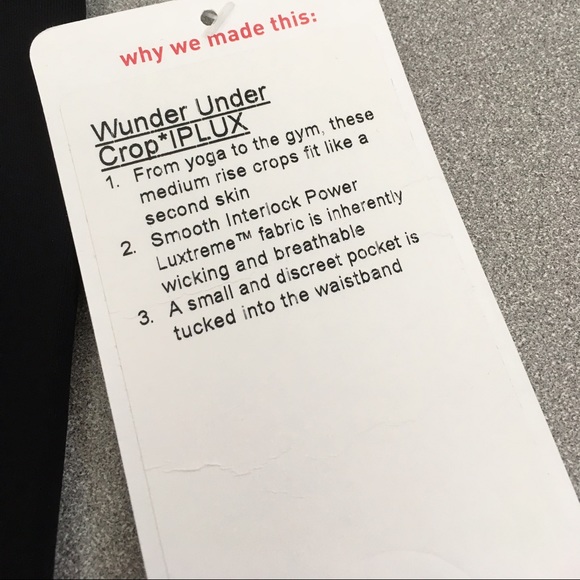 why we made this:
Wunder Under
Crop*IPLUX
1. From yoga to the gym, these
medium rise crops fit like a
second skin
2. Smooth Interlock Power
Luxtreme™ fabric is inherently
wicking and breathable
3. A small and discreet pocket is
tucked into the waistband